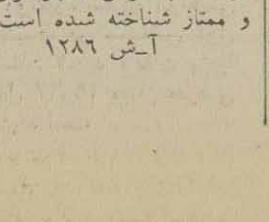 و ممتاز شناخته شده است
آ-ش ۱۲۸۶